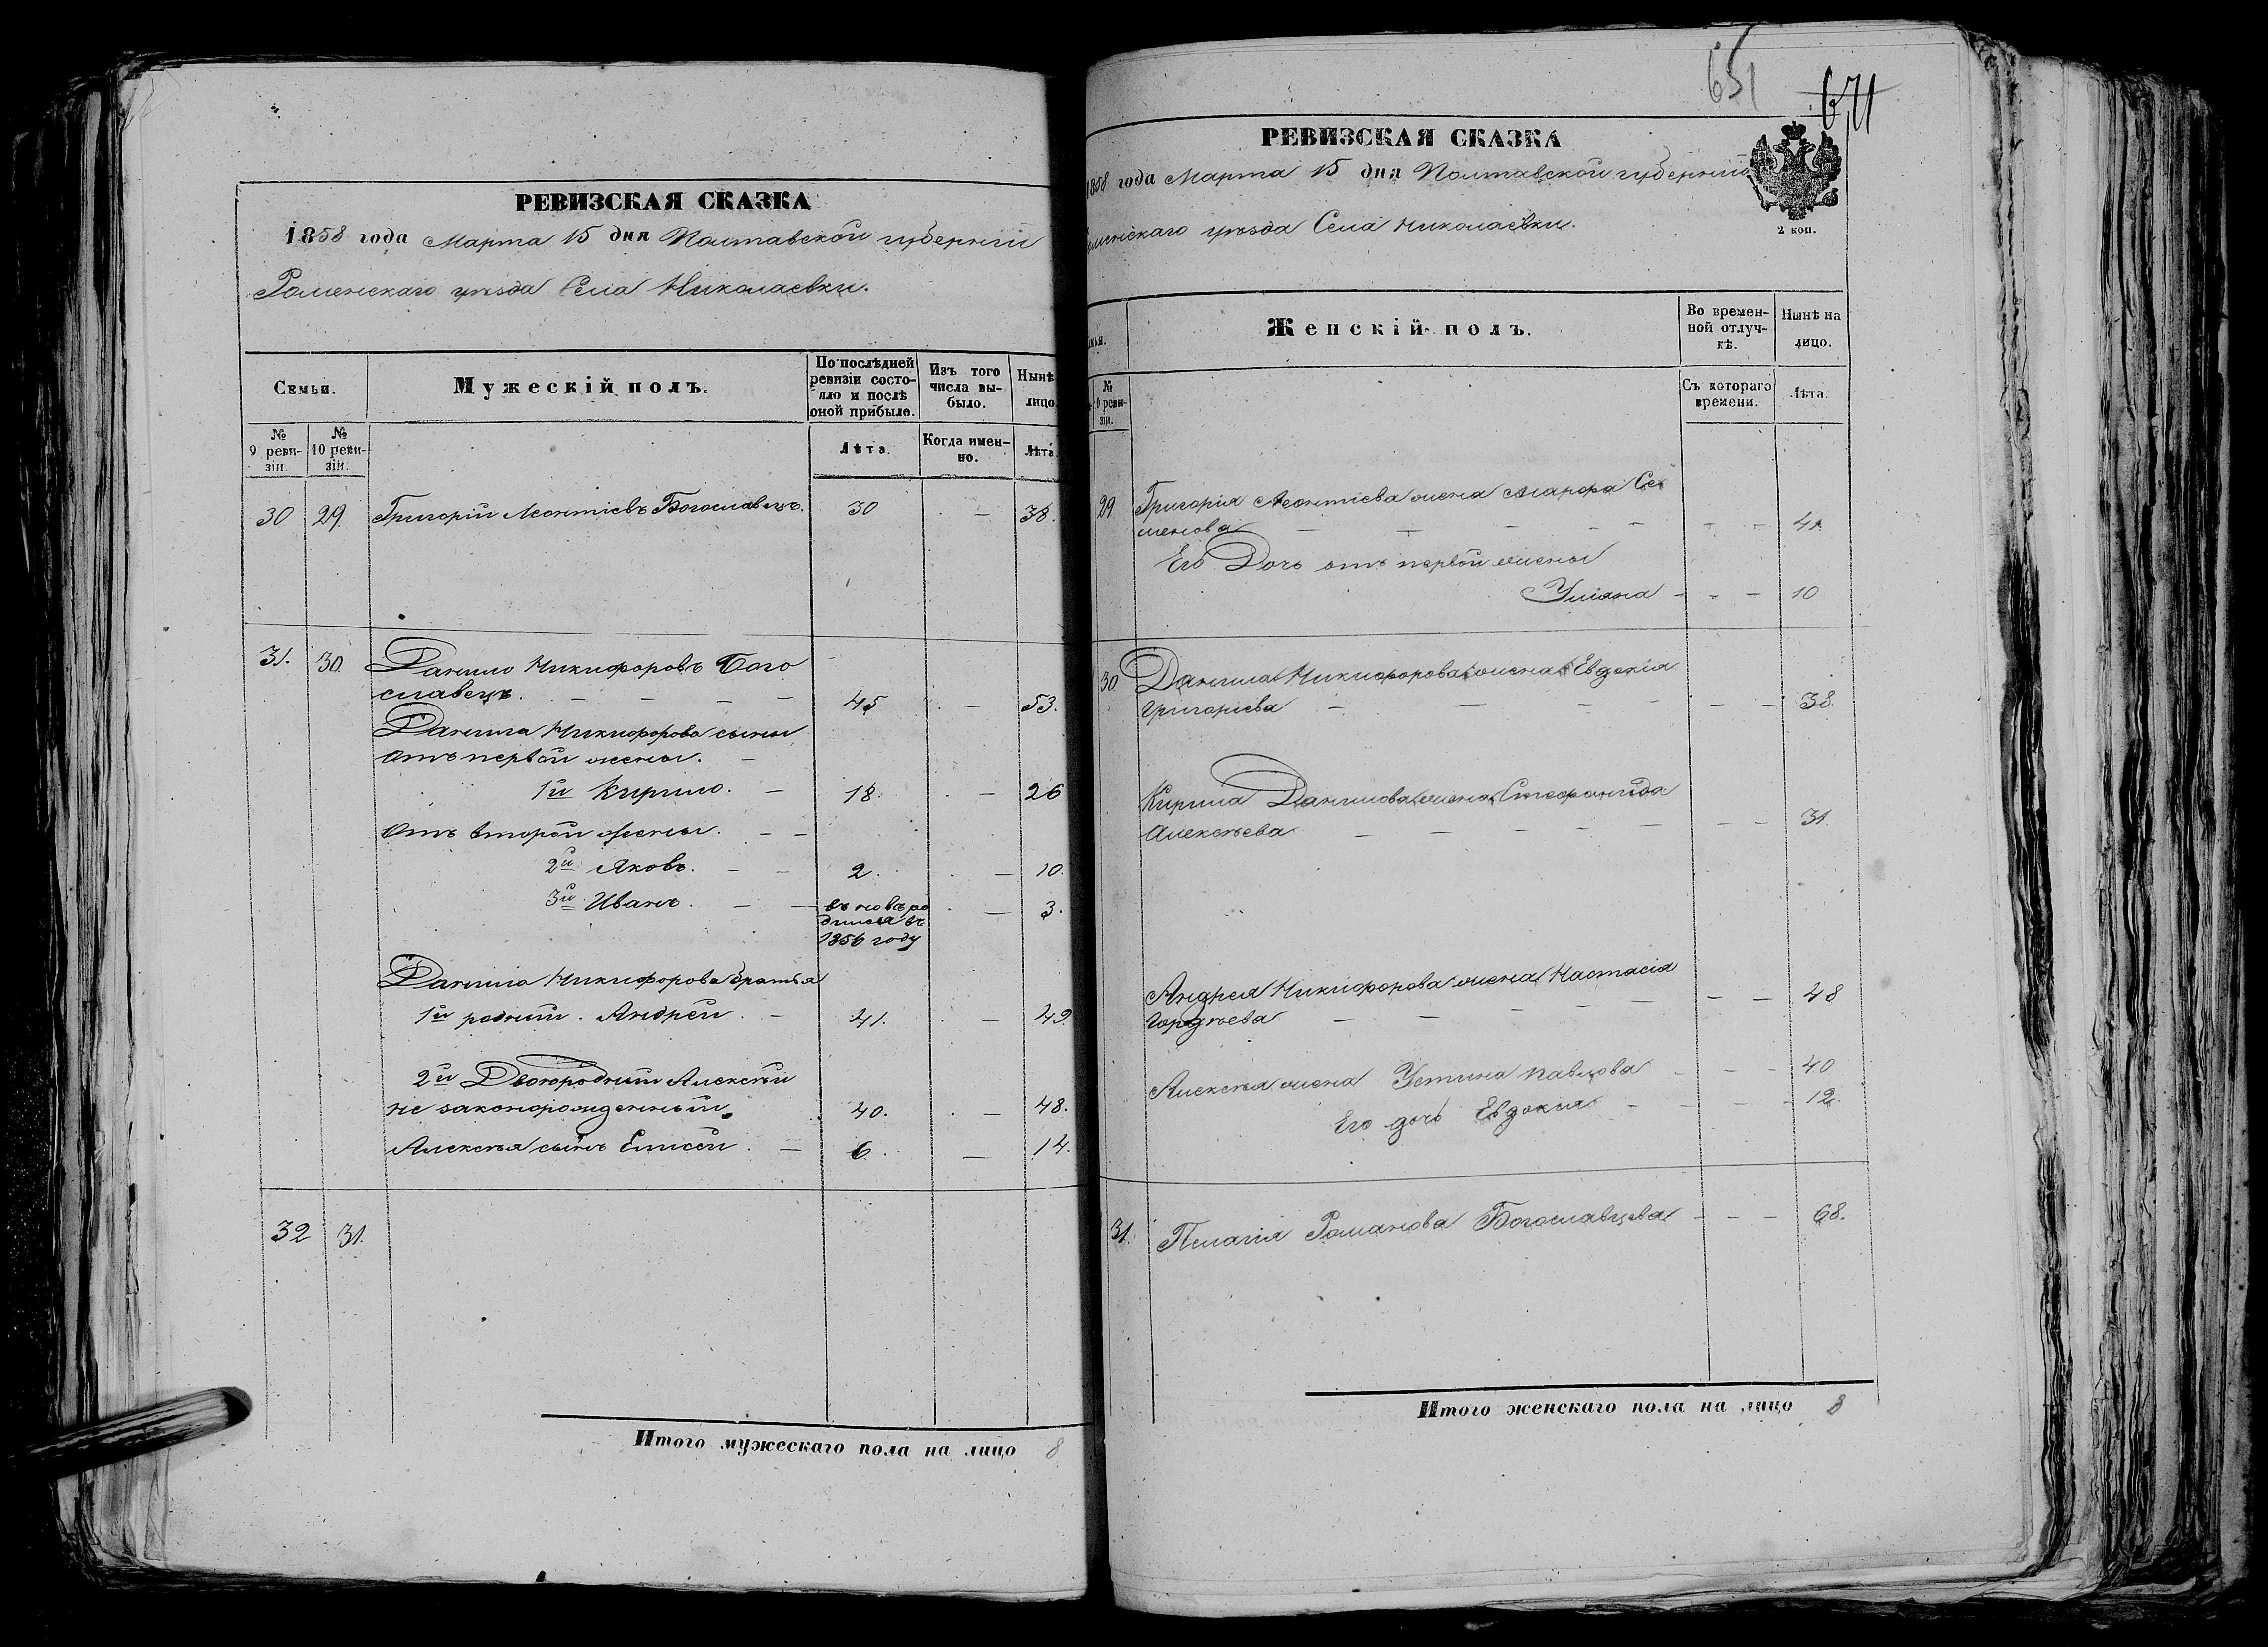 РЕВИЗСКАЯ СКАЗКА
1858 года Марта 15 дня Полтавской губерніи
Роменскаго уѣзда Села Николаевки.
Семьи.
Мужескій полъ.
По послѣдней ревизіи состояло и послѣ оной прибыло.
Изъ того числа выбыло.
Нынѣ
лицо.
№ 9 ревизіи.
№ 10 ревизіи.
Лѣта.
Когда именно.
Лѣта
30 29 Григорій Леонтіевъ Богославецъ. 30 — 38.
31. 30. Данило Никифоровъ Бого
славецъ. — — — — 45 — 53.
Данила Никифорова сыны
отъ первой жены. —
1й Кирило. — 18. — 26
отъ второй жены. — —
2й Яковъ. — — 2. — 10.
3й Иванъ. — — въ новѣ ро — 3.
дился въ
1856 году
Данила Никифорова братья
1й родный. Андрей. — 41. — 49.
2й Двоюродный Алексѣй
не законорожденный. 40. — 48.
Алексѣя сынъ Елисей. — 6. — 14.
32 31.
Итого мужескаго пола на лицо 8
651
РЕВИЗСКАЯ СКАЗКА
1858 года Марта 15 дня Полтавской губерніи
менскаго уѣзда Села Николаевки.
2 коп.
Женскій полъ.
Во временной отлучкѣ.
Нынѣ на лицо.
№ 10 ревизіи.
Съ котораго времени.
Лѣта.
29 Григорія Леонтіева жена Марфа Се
менова — — — — — — 41
Его Дочь отъ первой жены
Уліана — — — 10
30 Данила Никифорова жена Евдокія
Григоріева — — — — — — 38.
Кирила Данилова жена Стефанида
Алексѣева — — — — — — — 31.
Андрея Никифорова жена Настасія — — 48
Гордѣева — — — — —
Алексѣя жена Устина Павлова — — — 40
Его дочь Евдокія — — — — 12.
31. Пелагія Романова Богославцева — — — 68.
Итого женскаго пола на лицо 8